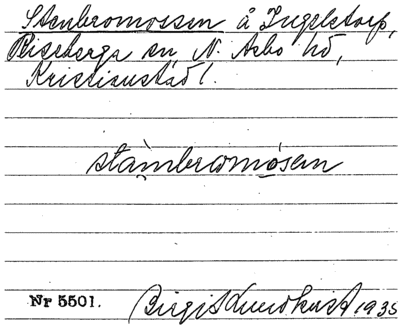 Stenbromossen å Ingelstorp,
Riseberga sn, N. Åsbo hd,
Kristianstad l.
stàmbromósem
Nr 5501. Birgit Lundkvist 1935